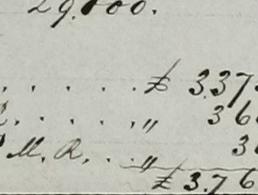 29.800.
. . . . . £ 337
. . . . ,, 36
M. R. . . ,, 3
£ 3.76